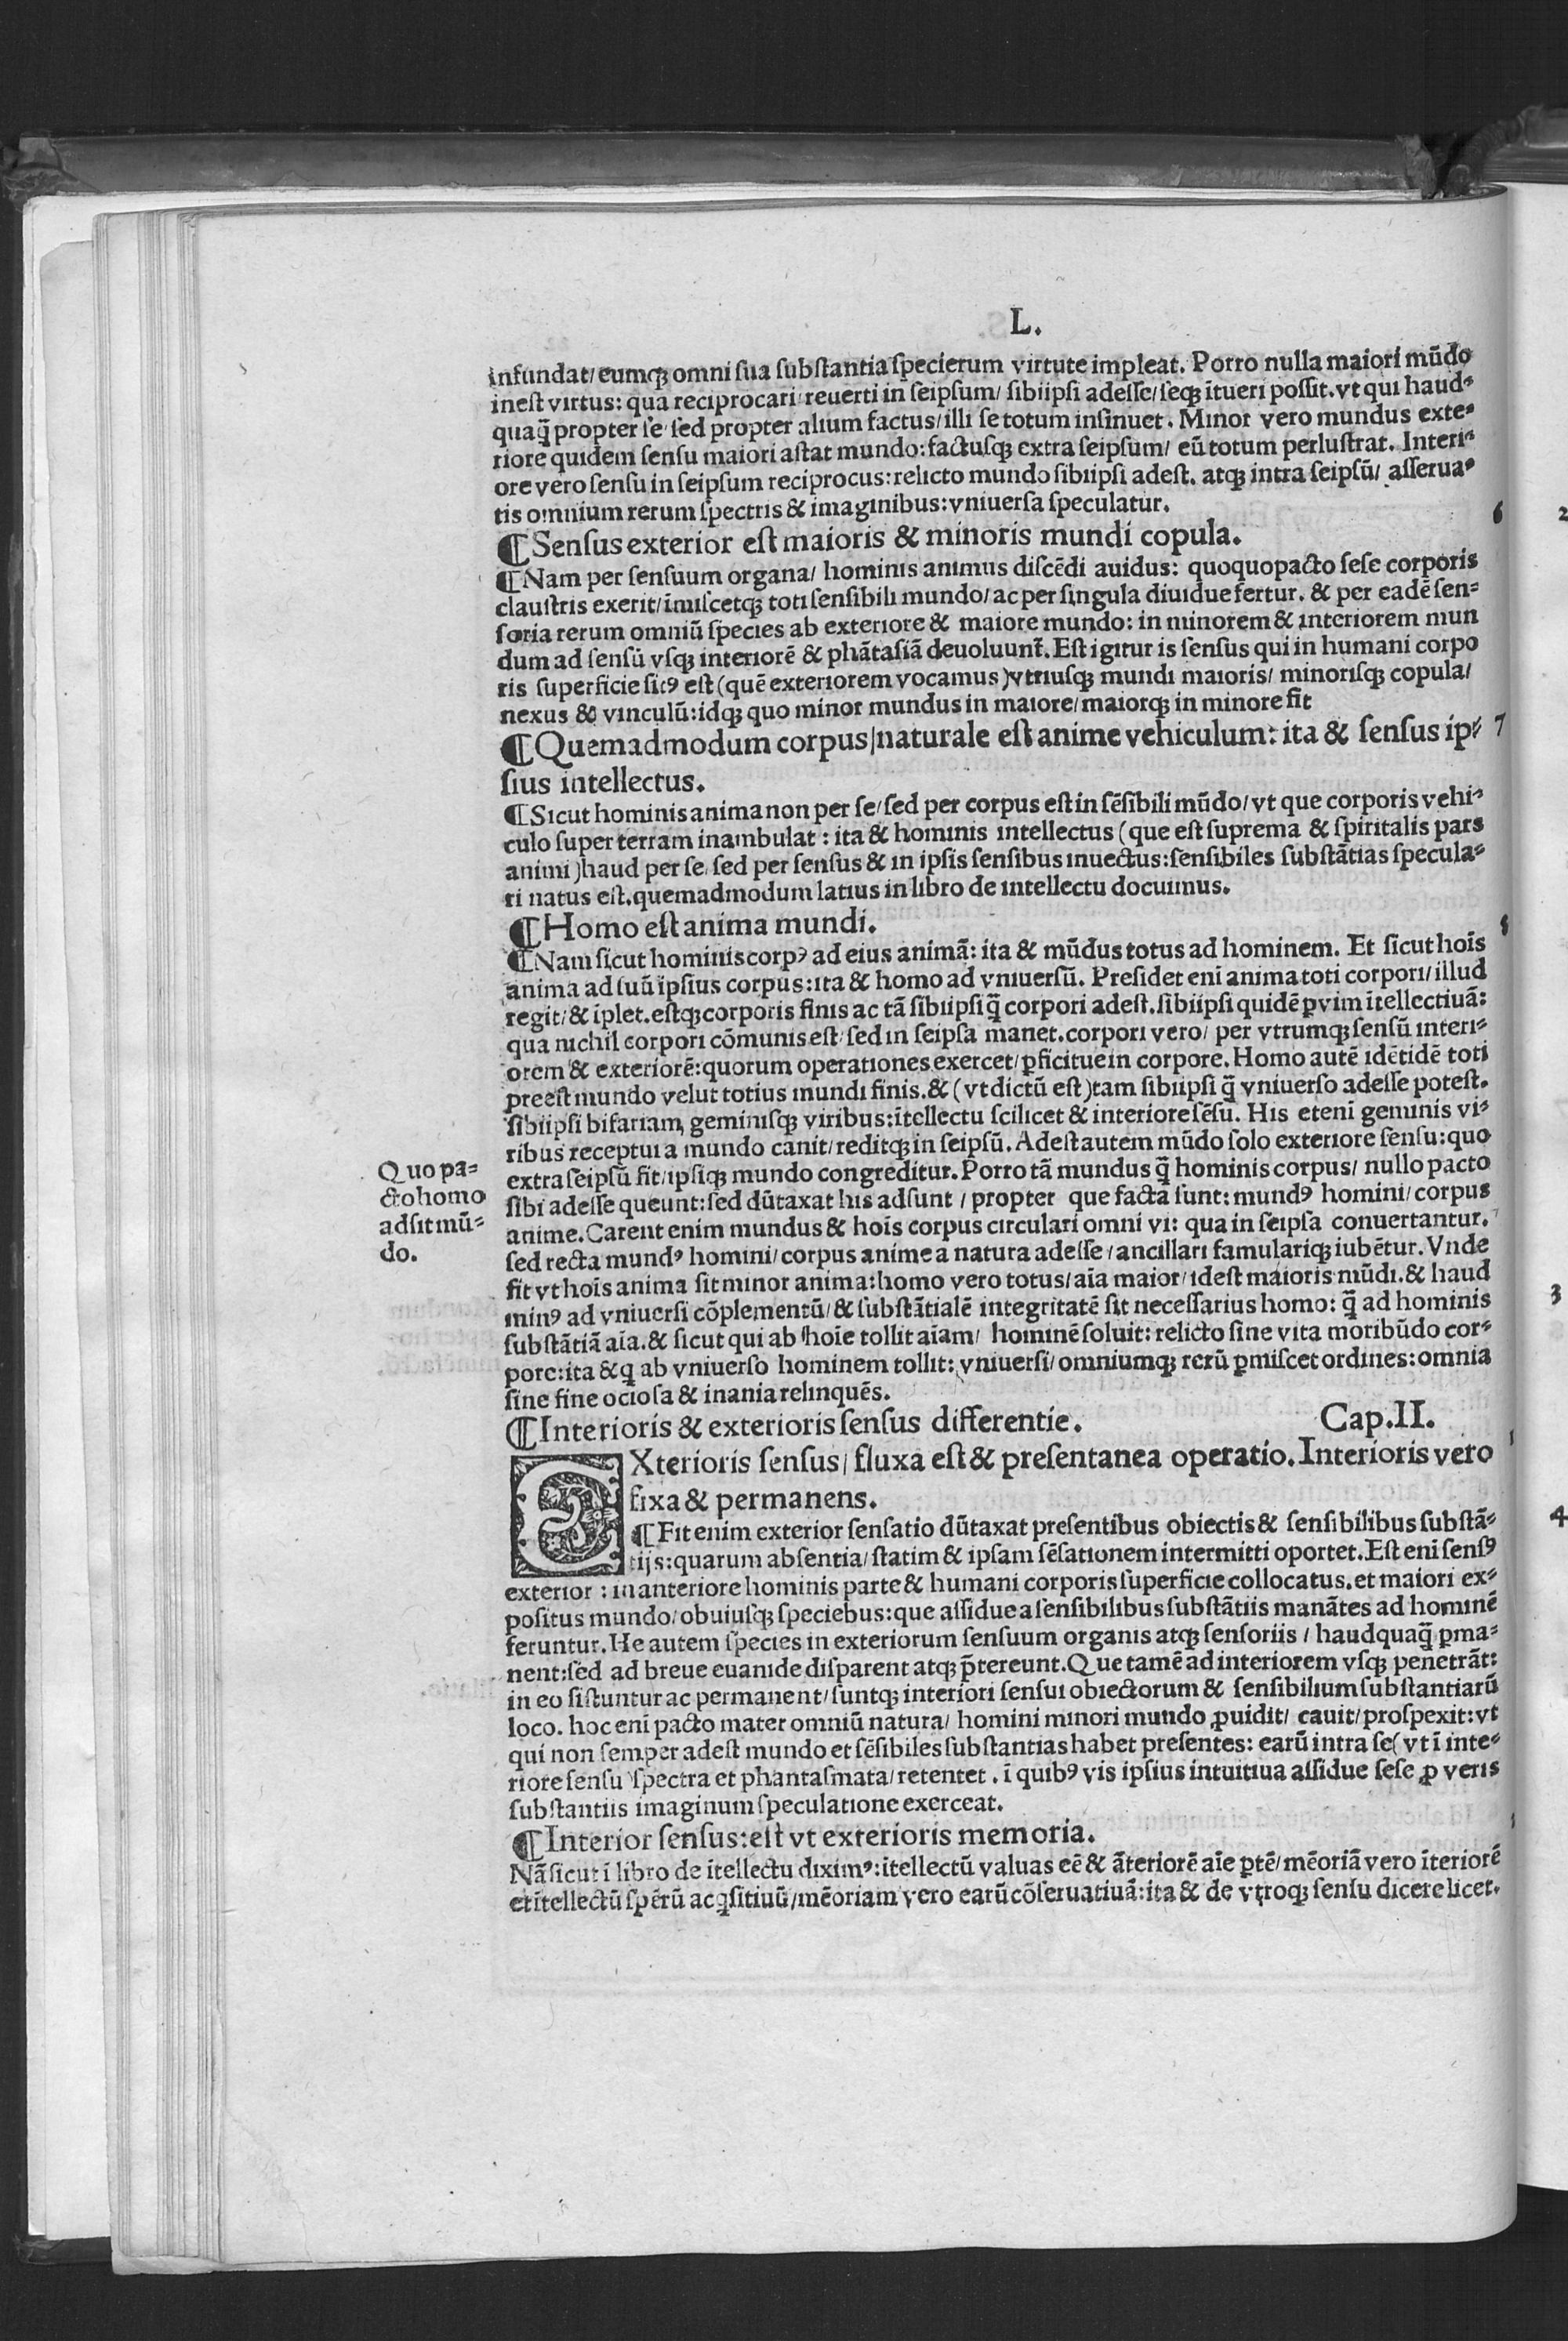 L.
infundat/eumqꝫ omni sua substantia specierum virtute impleat. Porro nulla maiori mūdo
inest virtus: qua reciprocari/reuerti in seipsum/ sibiipsi adesse/seqꝫ ītueri possit. vt qui haud-
quaq̄ propter se/sed propter alium factus/illi se totum insinuet. Minor vero mundus exte-
riore quidem sensu maiori astat mundo: factusqꝫ extra seipsum/ eū totum perlustrat. Interi-
ore vero sensu in seipsum reciprocus: relicto mundo sibiipsi adest. atqꝫ intra seipsū/ asserua-
tis omnium rerum spectris & imaginibus: vniuersa speculatur.
¶Sensus exterior est maioris & minoris mundi copula. 6
¶Nam per sensuum organa/ hominis animus discēdi auidus: quoquopacto sese corporis
claustris exerit/īmiscetqꝫ toti sensibili mundo/ac per singula diuidue fertur. & per eadē sen-
soria rerum omniū species ab exteriore & maiore mundo: in minorem & interiorem mun
dum ad sensū vsqꝫ interiorē & phātasiā deuoluunt̄. Est igitur is sensus qui in humani corpo
ris superficie sitꝰ est (quē exteriorem vocamus) vtriusqꝫ mundi maioris/ minorisqꝫ copula/
nexus & vinculū: idqꝫ quo minor mundus in maiore/maiorqꝫ in minore fit
¶Quemadmodum corpus/naturale est anime vehiculum: ita & sensus ip- 7
sius intellectus.
¶Sicut hominis anima non per se/sed per corpus est in sēsibili mūdo/vt que corporis vehi-
culo super terram inambulat: ita & hominis intellectus (que est suprema & spiritalis pars
animi) haud per se/sed per sensus & in ipsis sensibus inuectus: sensibiles substātias specula-
ri natus est. quemadmodum latius in libro de intellectu docuimus.
¶Homo est anima mundi. 8
¶Nam sicut hominis corpꝰ ad eius animā: ita & mūdus totus ad hominem. Et sicut hoīs
anima ad suū ipsius corpus: ita & homo ad vniuersū. Presidet eni anima toti corpori/illud
regit/& īplet. estqꝫ corporis finis ac tā sibiipsi q̄ corpori adest. sibiipsi quidē ꝑ vim ītellectiuā:
qua nichil corpori cōmunis est/sed in seipsa manet. corpori vero/ per vtrumqꝫ sensū interi-
orem & exteriorē: quorum operationes exercet/ꝑficitue in corpore. Homo autē idētidē toti
preest mundo velut totius mundi finis. & (vt dictū est) tam sibiipsi q̄ vniuerso adesse potest.
sibiipsi bifariam, geminisqꝫ viribus: ītellectu scilicet & interiore sēsu. His etenī geminis vi-
ribus receptui a mundo canit/reditqꝫ in seipsū. Adest autem mūdo solo exteriore sensu: quo
extra seipsū fit/ipsiqꝫ mundo congreditur. Porro tā mundus q̄ hominis corpus/ nullo pacto
sibi adesse queunt: sed dūtaxat his adsunt/ propter que facta sunt: mundꝰ homini/corpus
anime. Carent enim mundus & hoīs corpus circulari omni vi: qua in seipsa conuertantur.
sed recta mundꝰ homini/corpus anime a natura adesse/ancillari famulariqꝫ iubētur. Vnde
fit vt hoīs anima sit minor anima: homo vero totus/aīa maior/idest maioris mūdi. & haud
minꝰ ad vniuersi cōplementū/& substātialē integritatē sit necessarius homo: q̄ ad hominis
substātiā aīa. & sicut qui ab hoīe tollit aīam/ hominē soluit: relicto sine vita moribūdo cor-
pore: ita & q̄ ab vniuerso hominem tollit: vniuersi/omniumqꝫ rerū ꝑmiscet ordines: omnia
sine fine ociosa & inania relinquēs.
Quo pa-
cto homo
adsit mū-
do.
¶Interioris & exterioris sensus differentie. Cap.II.
EXterioris sensus/ fluxa est & presentanea operatio. Interioris vero 1
fixa & permanens.
¶Fit enim exterior sensatio dūtaxat presentibus obiectis & sensibilibus substā-
tijs: quarum absentia/statim & ipsam sēsationem intermitti oportet. Est eni sensꝰ
exterior: in anteriore hominis parte & humani corporis superficie collocatus. et maiori ex-
positus mundo/obuiusqꝫ speciebus: que assidue a sensibilibus substātiis manātes ad hominē
feruntur. He autem species in exteriorum sensuum organis atqꝫ sensoriis/ haudquaq̄ ꝑma-
nent: sed ad breue euanide disparent atqꝫ p̄tereunt. Que tamē ad interiorem vsqꝫ penetrāt:
in eo sistuntur ac permanent/suntqꝫ interiori sensui obiectorum & sensibilium substantiarū
loco. hoc eni pacto mater omniū natura/ homini minori mundo ꝓuidit/ cauit/prospexit: vt
qui non semper adest mundo et sēsibiles substantias habet presentes: earū intra se (vt ī inte-
riore sensu) spectra et phantasmata/retentet. ī quibꝰ vis ipsius intuitiua assidue sese ꝓ veris
substantiis imaginum speculatione exerceat.
¶Interior sensus: est vt exterioris memoria.
Nā sicut ī libro de ītellectu diximꝰ: itellectū valuas eē & āteriorē aīe ꝑtē/mēoriā vero īteriorē
et ītellectū sp̄erū acq̄sitiuū/mēoriam vero earū cōseruatiuā: ita & de vtroqꝫ sensu dicere licet.